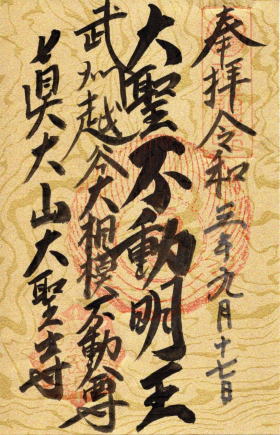 奉拝令和三年九月十七日
大聖不動明王
武州越谷大相模不動尊
真大山大聖寺